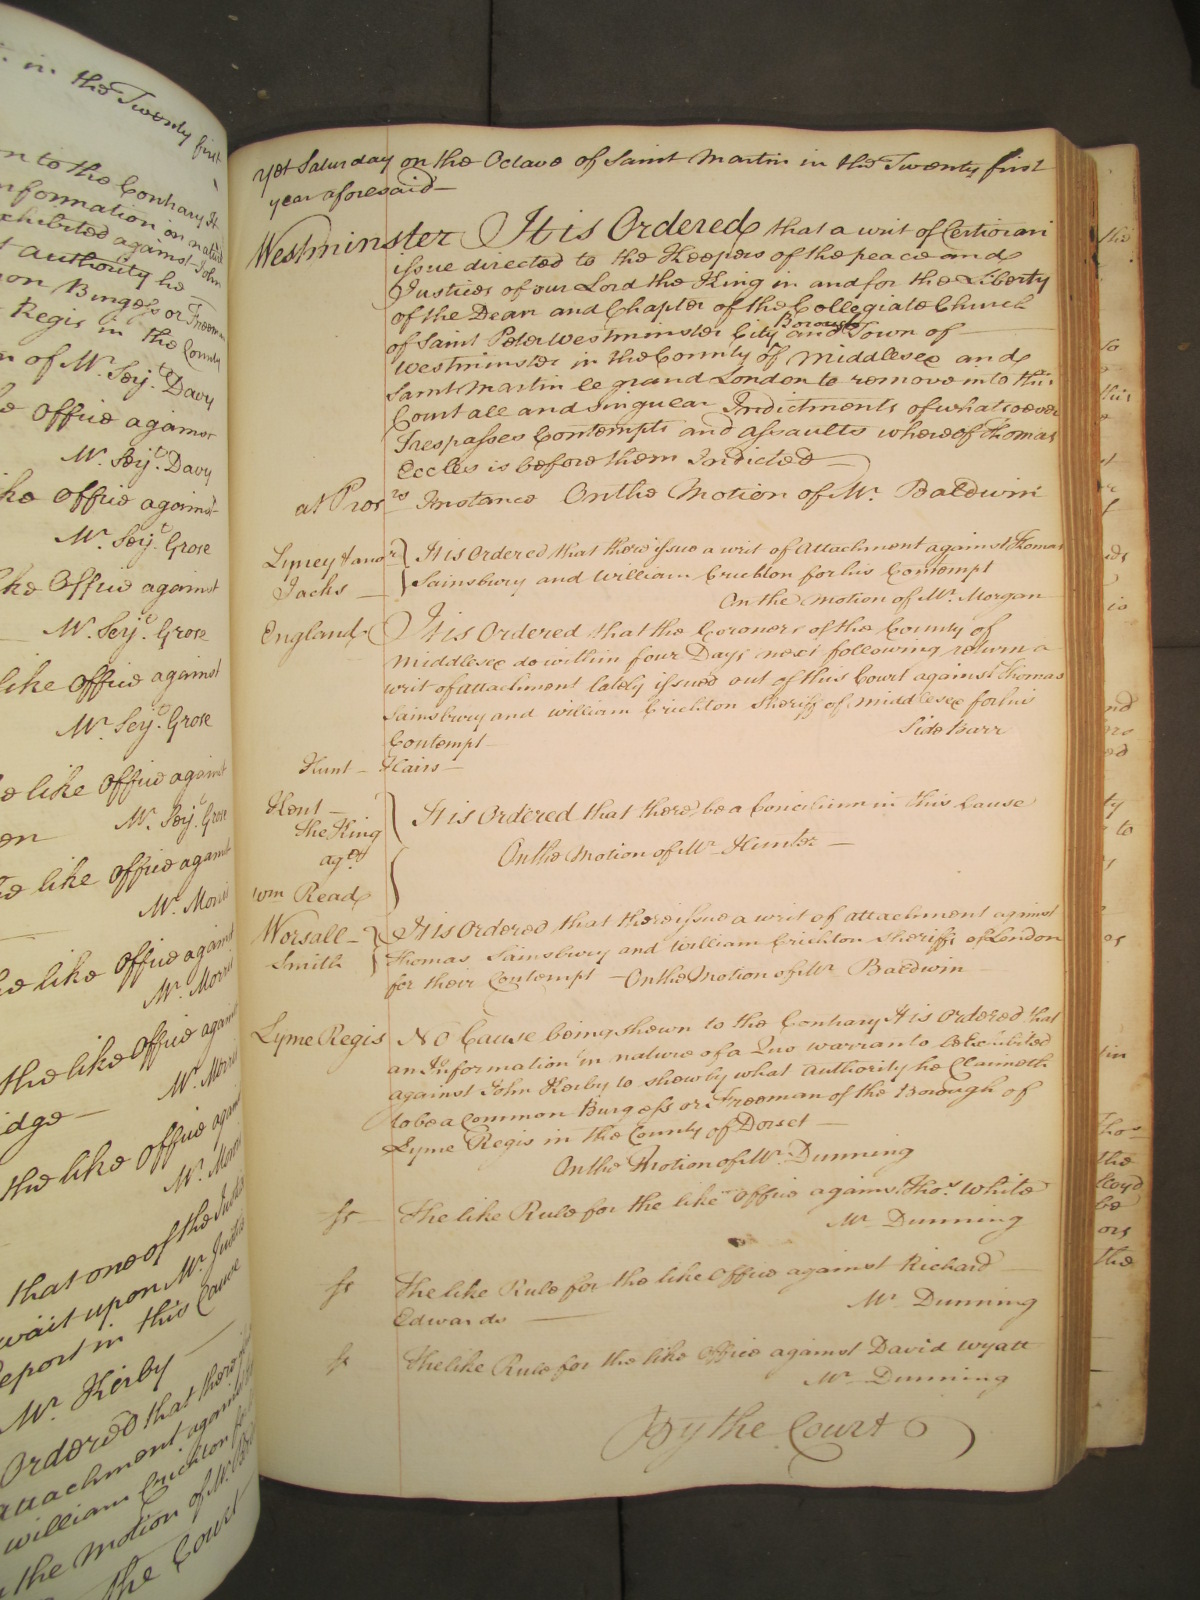 in the Twenty first
on to the Contrary It
nformation in nature
exhibited against John
t authority he
on Burgess or Freeman
Regis in the County
n of Mr. Serj.t Davy
e office against
Mr. Serj.t Davy
ke office against
Mr. Serj.t Grose
ke Office against
Mr. Serj.t Grose
like office against
Mr. Serj.t Grose
e like office against
en Mr. Serj.t Grose
e like office against
Mr. Morris
e like office against
Mr. Morris
the like office against
Mr. Morris
idge
the like office against
Mr. Morris
that one of the
wait upon Mr. Justice
eport in this Cause
Mr. Kirby
Ordered that there
attachment against
William Crichton
the Motion of Mr.
the Court
Yet Saturday on the Octave of Saint Martin in the Twenty first
year aforesaid
Westminster It is Ordered that a writ of Certiorari
issue directed to the Keepers of the peace and
Justices of our Lord the King in and for the Liberty
of the Dean and Chapter of the Collegiate Church
of Saint Peter Westminster City Borough and Town of
Westminster in the County of Middlesex and
Saint Martin le grand London to remove into this
Court all and singular Indictments of whatsoever
Trespasses Contempts and assaults whereof Thomas
Eccles is before them Indicted
at Pros.rs Instance On the Motion of Mr. Baldwin
Lipsey & anor It is Ordered that there issue a writ of Attachment against Thomas
Jacks Sainsbury and William Crichton for his Contempt
On the motion of Mr. Morgan
England It is Ordered that the Coroners of the County of
Middlesex do within four Days next following return a
writ of attachment lately issued out of this Court against Thomas
Sainsbury and William Crichton Sheriff of Middlesex for his
Contempt Side Barr
Hunt Hairs
Kent It is Ordered that there be a Concilium in this Cause
The King
ag.st On the Motion of Mr. Hunter
Wm Read
Worsall It is Ordered that there issue a writ of attachment against
Smith Thomas Sainsbury and William Crichton Sheriffs of London
for their Contempt On the Motion of Mr. Baldwin
Lyme Regis No Cause being shewn to the Contrary It is Ordered that
an Information in nature of a Quo warranto be Exhibited
against John Kerby to shew by what authority he Claimeth
to be a Common Burgess or Freeman of the Borough of
Lyme Regis in the County of Dorset
On the Motion of Mr. Dunning
ss The like Rule for the like Office against Thos. White
Mr. Dunning
ss The like Rule for the like Office against Richard
Edwards Mr. Dunning
ss The like Rule for the like Office against David Wyatt
Mr. Dunning
By the Court